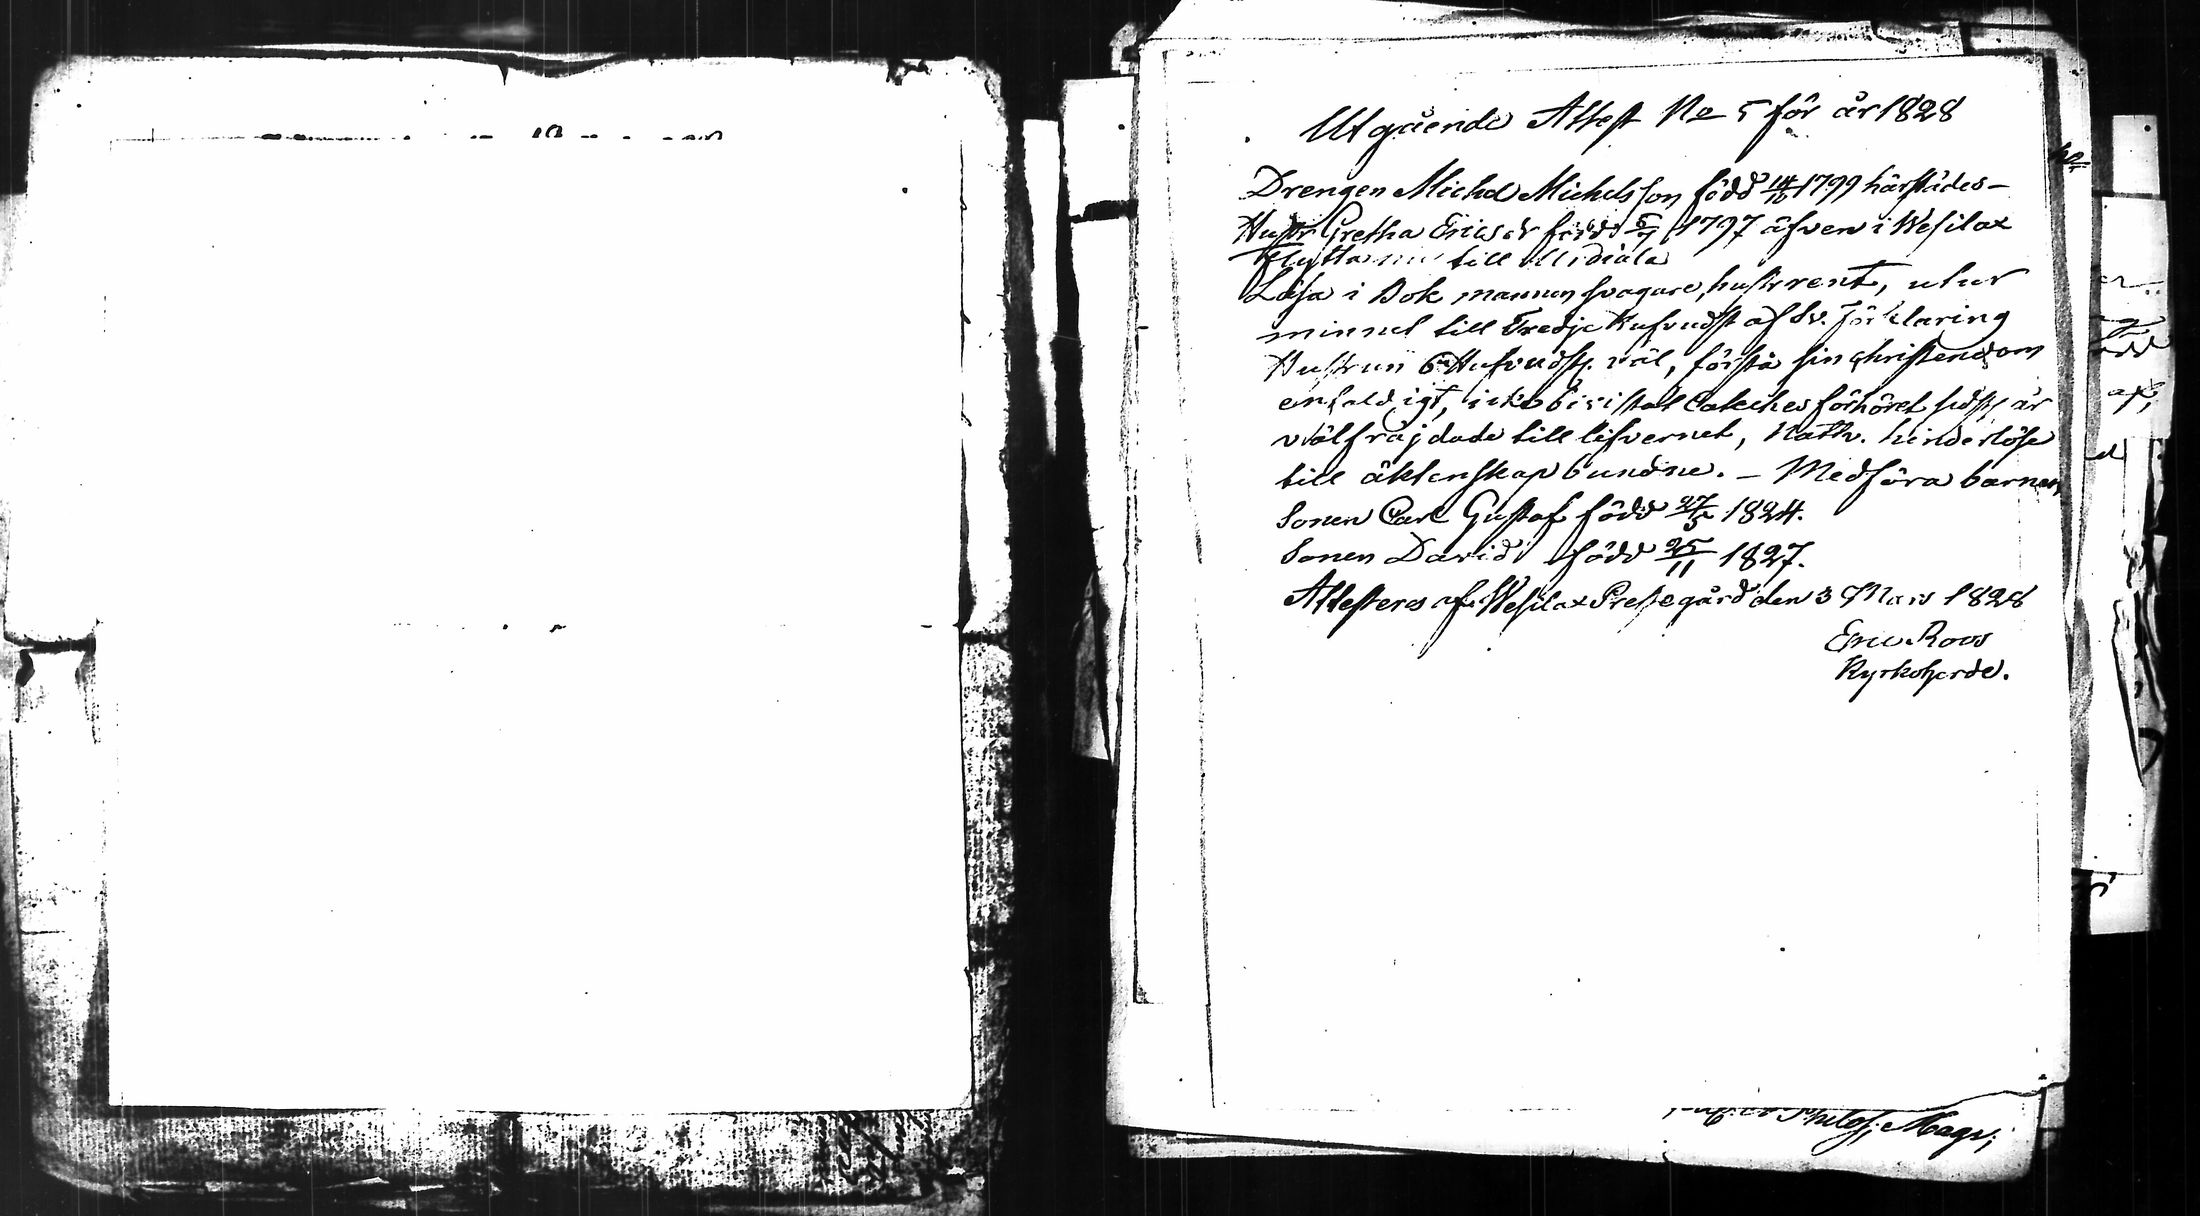 Utgående Attest No 5 för år 1828
Drengen Michel Michelsson född 14/10 1799 härstädes –
Hustr Gretha Ericsdr född 5/7 1797 äfven i Wesilax
Flytta nu till Urdiala
Läsa i Bok mannen svagare, hustr rent, utur
minnet till Tredje Hufvudst af Sv. Förklaring
Hustrun 6 Hufvudst. väl, förstå sin christendom
enfaldigt, icke bivistat Catechesförhöret sidsts år
välfräjdade till lefvernet, Nattv. hinderlöse
till äktenskap bundne. – Medföra barnen
Sonen Carl Gustaf född 27/5 1824.
Sonen David född 25/11 1827.
Attesteres af Wesilax Prestegård den 3 Mars 1828
Eric Roos
Kyrkoherde.
Philos: Magr;